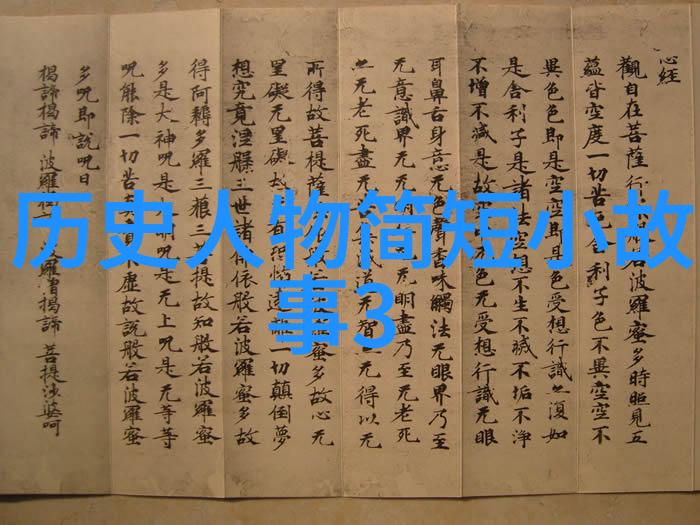 历史人物简短小故
事3
心经
觀自在菩薩行 若波羅蜜多時照見五
蘊皆空度一切苦 舍利子色不異空空不
異色色即是空空 即是色受想行識亦復如
是舍利子是諸法空想不生不滅不垢不淨
不增不減是故 色无受想行識无眼
耳鼻舌身意无色聲香味觸法无眼界乃至
无意識界无无明 无无明盡乃至无老死
亦无老死盡 集滅道无智 无得以无
所得故菩提薩 波羅蜜多故心无
罣礙无罣礙故 有恐怖遠離一切顛倒夢
想究竟涅槃三世諸 依般若波羅蜜多故
得阿耨多羅三藐三菩提故知般若波羅蜜
多是大神呪是大明呪是无上呪是无等等
呪能除一切苦真 不虛故說般若波羅蜜
多呪即說呪曰
揭諦揭諦 波羅揭 波羅僧揭諦 菩提 婆呵